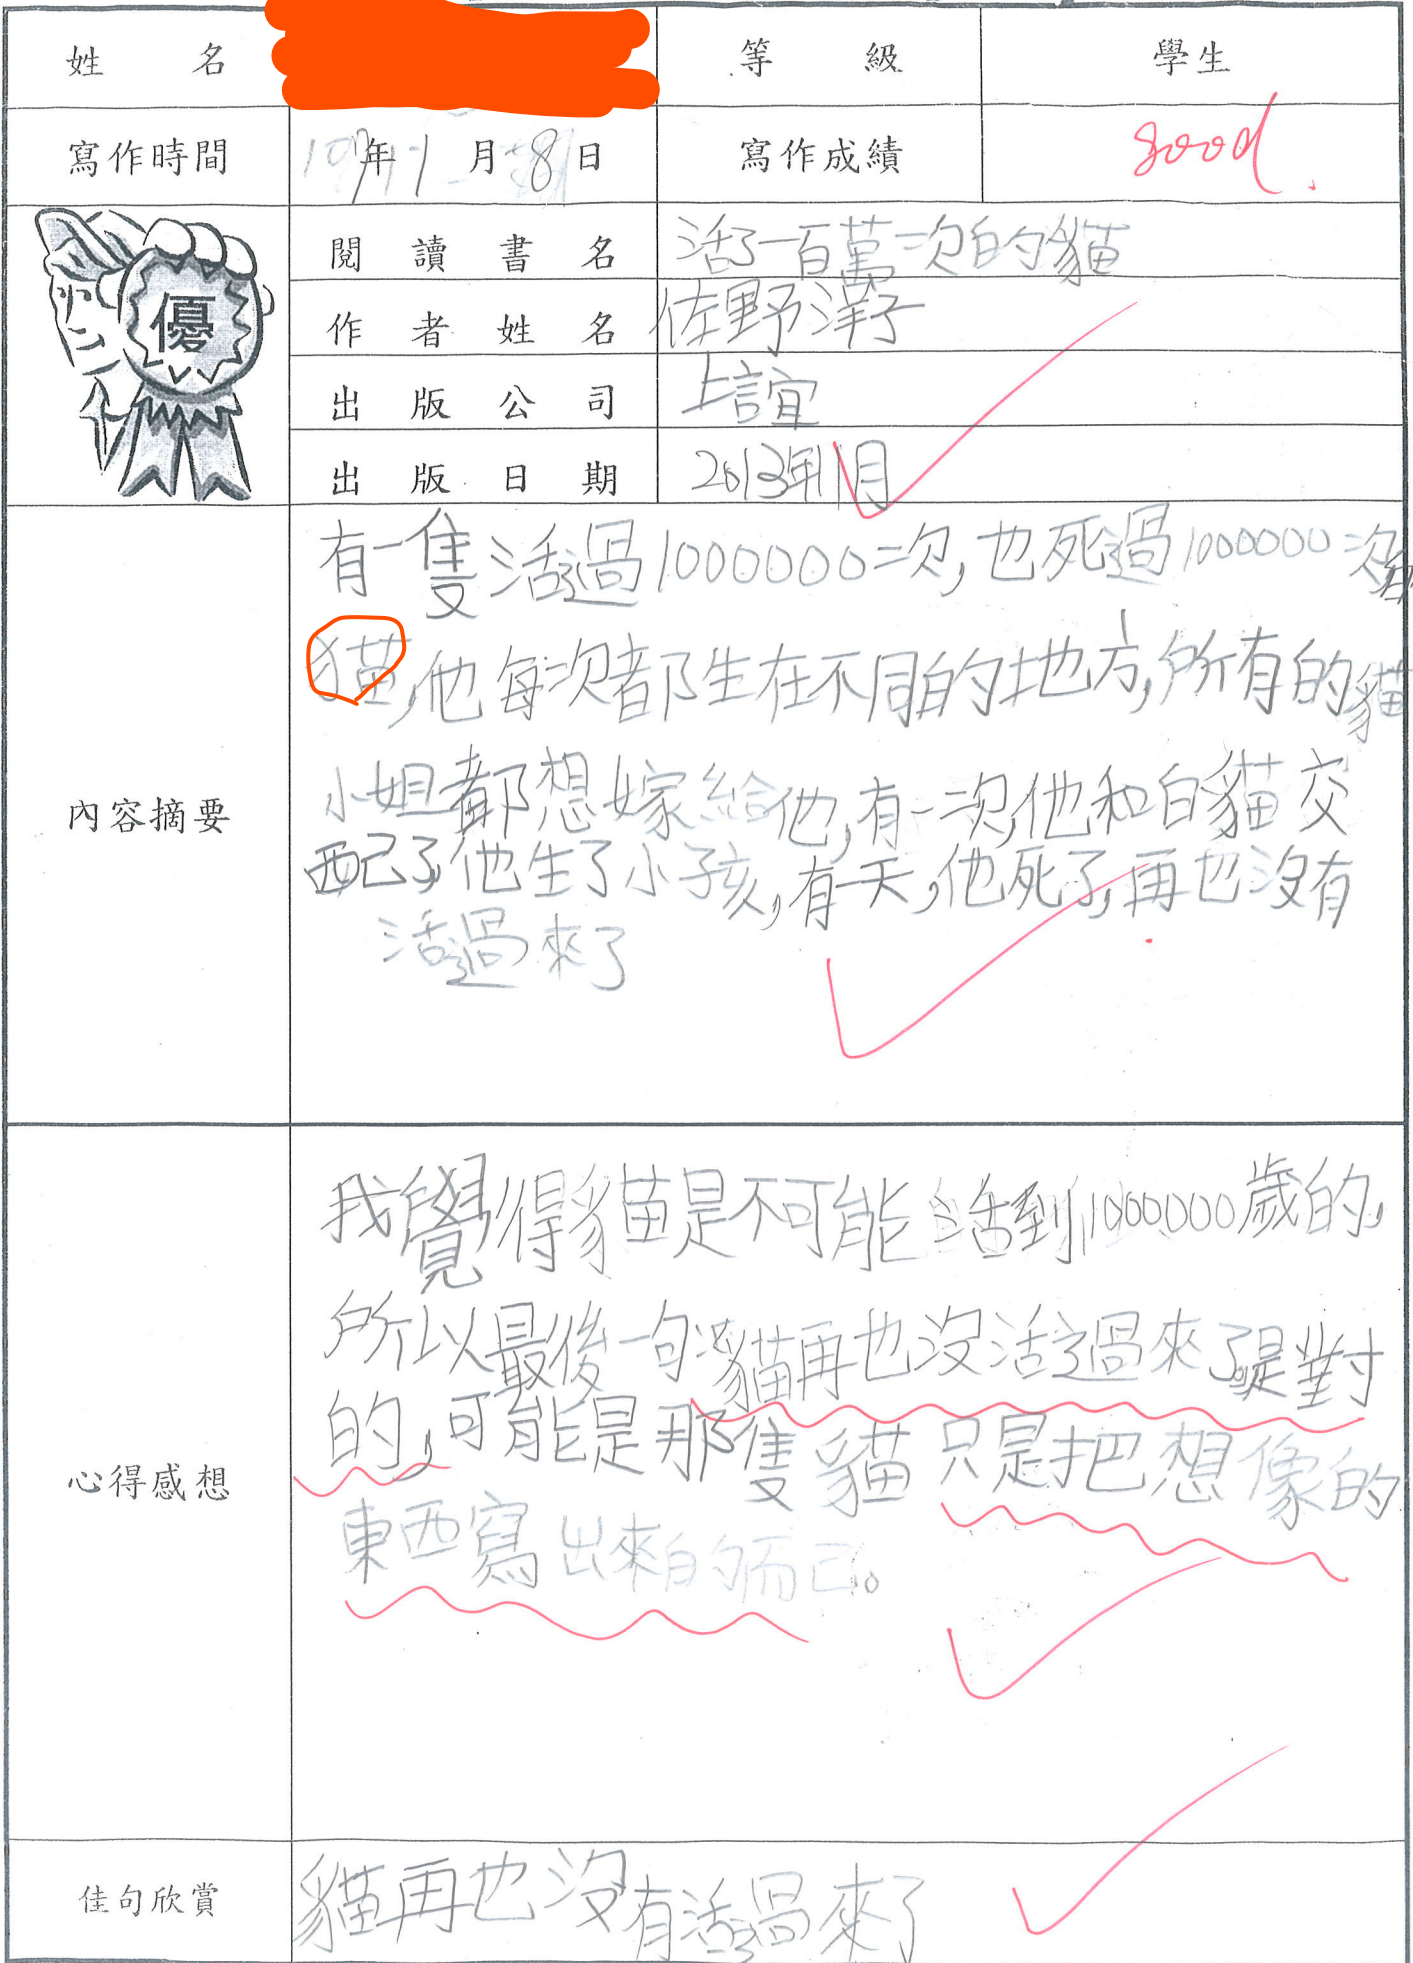 姓名 等級 學生
寫作時間 年1月8日 寫作成績 good.
優
閱讀書名 活了一百萬次的貓
作者姓名 佐野洋子
出版公司 上誼
出版日期 2013年1月
內容摘要
有一隻活過1000000次,也死過1000000次
猫,他每次都生在不同的地方,所有的貓
小姐都想嫁給他,有一次,他和白貓交
配了,他生了小孩,有一天,他死了,再也沒有
活過來了
心得感想
我覺得貓是不可能活到1000000歲的,
所以最後一句貓再也沒活過來了是對
的,可能是那隻貓只是把想像的
東西寫出來的而己。
佳句欣賞 貓再也沒有活過來了